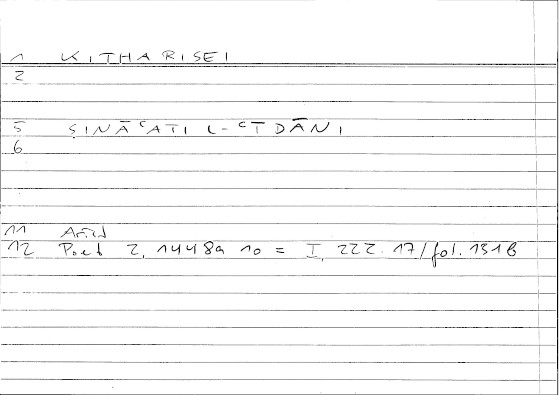 1 KITHARISEI
2
5 ṢINĀʿATI L-ʿĪDĀNI
6
11 Arist
12 Poet 2, 1448a 10 = I, 222.17/fol. 131b